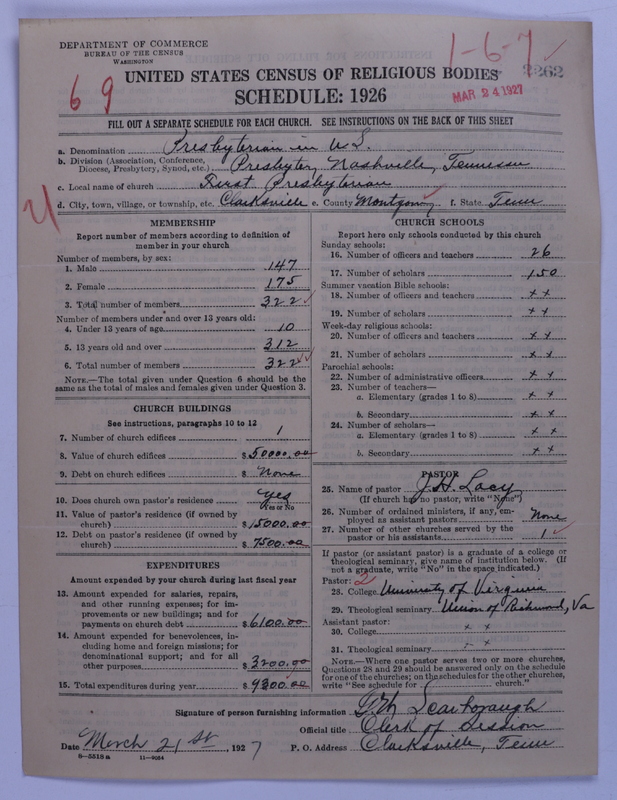 DEPARTMENT OF COMMERCE
BUREAU OF THE CENSUS
WASHINGTON
1-6-7
69
2262
MAR 24 1927
UNITED STATES CENSUS OF RELIGIOUS BODIES
SCHEDULE: 1926
FILL OUT A SEPARATE SCHEDULE FOR EACH CHURCH. SEE INSTRUCTIONS ON THE BACK OF THIS SHEET
a. Denomination Presbyterian in U.S.
b. Division (Association, Conference, Diocese, Presbytery, Synod, etc.) Presbytery, Nashville, Tennessee
c. Local name of church First Presbyterian
d. City, town, village, or township, etc. Clarksville e. County Montgomery f. State Tenn
MEMBERSHIP
Report number of members according to definition of
member in your church
Number of members, by sex:
1. Male 147
2. Female 175
3. Total number of members 322
Number of members under and over 13 years old:
4. Under 13 years of age 10
5. 13 years old and over 312
6. Total number of members 322
NOTE.—The total given under Question 6 should be the
same as the total of males and females given under Question 3.
CHURCH BUILDINGS
See instructions, paragraphs 10 to 12
7. Number of church edifices 1
8. Value of church edifices $50000.00
9. Debt on church edifices $ None
10. Does church own pastor's residence Yes
Yes or No
11. Value of pastor's residence (if owned by
church) $15000.00
12. Debt on pastor's residence (if owned by
church) $7500.00
EXPENDITURES
Amount expended by your church during last fiscal year
13. Amount expended for salaries, repairs,
and other running expenses; for im-
provements or new buildings; and for
payments on church debt $6100.00
14. Amount expended for benevolences, in-
cluding home and foreign missions; for
denominational support; and for all
other purposes $3200.00
15. Total expenditures during year $9300.00
CHURCH SCHOOLS
Report here only schools conducted by this church
Sunday schools:
16. Number of officers and teachers 26
17. Number of scholars 150
Summer vacation Bible schools:
18. Number of officers and teachers x x
19. Number of scholars x x
Week-day religious schools:
20. Number of officers and teachers x x
21. Number of scholars x x
Parochial schools:
22. Number of administrative officers x x
23. Number of teachers—
a. Elementary (grades 1 to 8) x x
b. Secondary x x
24. Number of scholars—
a. Elementary (grades 1 to 8) x x
b. Secondary x x
PASTOR
25. Name of pastor J. H. Lacy
(If church has no pastor, write "None")
26. Number of ordained ministers, if any, em-
ployed as assistant pastors None
27. Number of other churches served by the
pastor or his assistants 1
If pastor (or assistant pastor) is a graduate of a college or
theological seminary, give name of institution below. (If
not a graduate, write "No" in the space indicated.)
Pastor: 2
28. College University of Virginia
29. Theological seminary Union of Richmond, Va
Assistant pastor:
30. College x x
31. Theological seminary x x
NOTE.—Where one pastor serves two or more churches,
Questions 28 and 29 should be answered only on the schedule
for one of the churches; on the schedules for the other churches,
write "See schedule for ____ church."
Signature of person furnishing information Scarborough
Official title Clerk of Session
Date March 21st, 1927 P. O. Address Clarksville, Tenn
8-5518a 11-9054